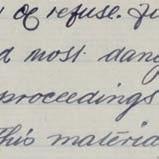 of refuse.
most dang
proceedings
this materia